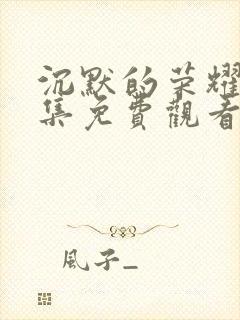 沉默的荣耀
集免費觀看
風子_